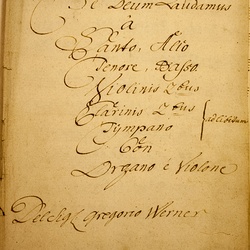 Te Deum Laudamus
à
Canto, Alto
Tenore, Basso
Violinis 2bus
Clarinis 2bus
Tympano
ad libitum
Con
Organo è Violone
Del Sigr Gregorio Werner